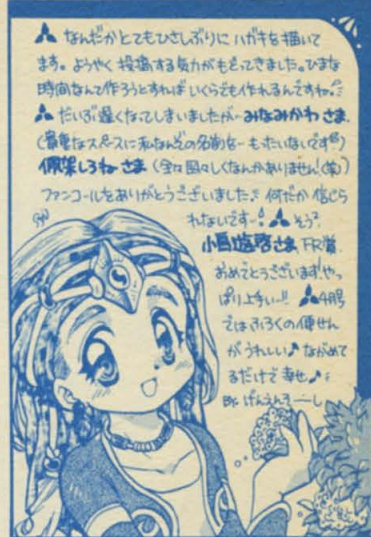 なんだかとてもひさしぶりに ハガキを描いて
ます。ようやく 投稿する気力がもどってきました。ひまな
時間なんて作ろうとすれば いくらでも作れるんですね。
だいぶ遅くなってしまいましたが みなみかわさま
(貴重なスペースに私なんぞの名前を もったいないです)
しろねさま (全々図々しくなんかありません!(笑))
ファンコールをありがとうございました。何だか信じら
れないですー! そう?
小島遊啓さま、FR賞
おめでとうございます!やっ
ぱり上手い!! 4月号
ではふろくの便せん
がうれしい♪ ながめて
るだけで幸せ♪